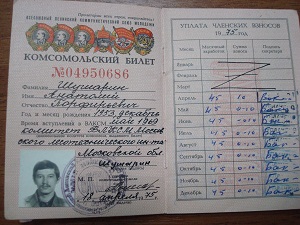 ВСЕСОЮЗНЫЙ ЛЕНИНСКИЙ КОММУНИСТИЧЕСКИЙ СОЮЗ МОЛОДЕЖИ
КОМСОМОЛЬСКИЙ БИЛЕТ
№04950686
Фамилия Шушарин
Имя Анатолий
Отчество
Год и месяц рождения 1953, декабрь
Время вступления в ВЛКСМ май 1969
комитет ВЛКСМ Москов
ского
Московской обл
М. П.
18 апреля 75г.
УПЛАТА ЧЛЕНСКИХ ВЗНОСОВ
1975 год
Месяц
Месячный заработок
Январь
Февраль
Март
Апрель 45 0-10
Май 45 0-10
Июнь 45 0-10
Июль 45 0-10
Август 45 0-10
Сентябрь 45 0-10
Октябрь 45 0-10
Ноябрь 45 0-10
Декабрь 45 0-10